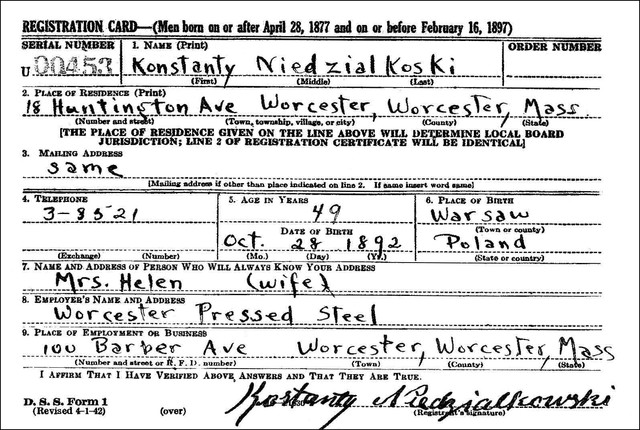 REGISTRATION CARD—(Men born on or after April 28, 1877 and on or before February 16, 1897)
SERIAL NUMBER 1. NAME (Print) ORDER NUMBER
U 00453 Konstanty Niedzial Koski
(First) (Middle) (Last)
2. PLACE OF RESIDENCE (Print)
18 Huntington Ave Worcester, Worcester, Mass
(Number and street) (Town, township, village, or city) (County) (State)
[THE PLACE OF RESIDENCE GIVEN ON THE LINE ABOVE WILL DETERMINE LOCAL BOARD
JURISDICTION; LINE 2 OF REGISTRATION CERTIFICATE WILL BE IDENTICAL]
3. MAILING ADDRESS
same
[Mailing address if other than place indicated on line 2. If same insert word same]
4. TELEPHONE 5. AGE IN YEARS 6. PLACE OF BIRTH
3-8521 49 Warsaw
DATE OF BIRTH (Town or county)
Oct. 28 1892 Poland
(Exchange) (Number) (Mo.) (Day) (Yr.) (State or country)
7. NAME AND ADDRESS OF PERSON WHO WILL ALWAYS KNOW YOUR ADDRESS
Mrs. Helen (wife)
8. EMPLOYER'S NAME AND ADDRESS
Worcester Pressed Steel
9. PLACE OF EMPLOYMENT OR BUSINESS
100 Barber Ave Worcester, Worcester, Mass
(Number and street or R. F. D. number) (Town) (County) (State)
I AFFIRM THAT I HAVE VERIFIED ABOVE ANSWERS AND THAT THEY ARE TRUE.
D. S. S. Form 1
(Revised 4-1-42) (over) Kostanty Niedzialkowski
(Registrant's signature)